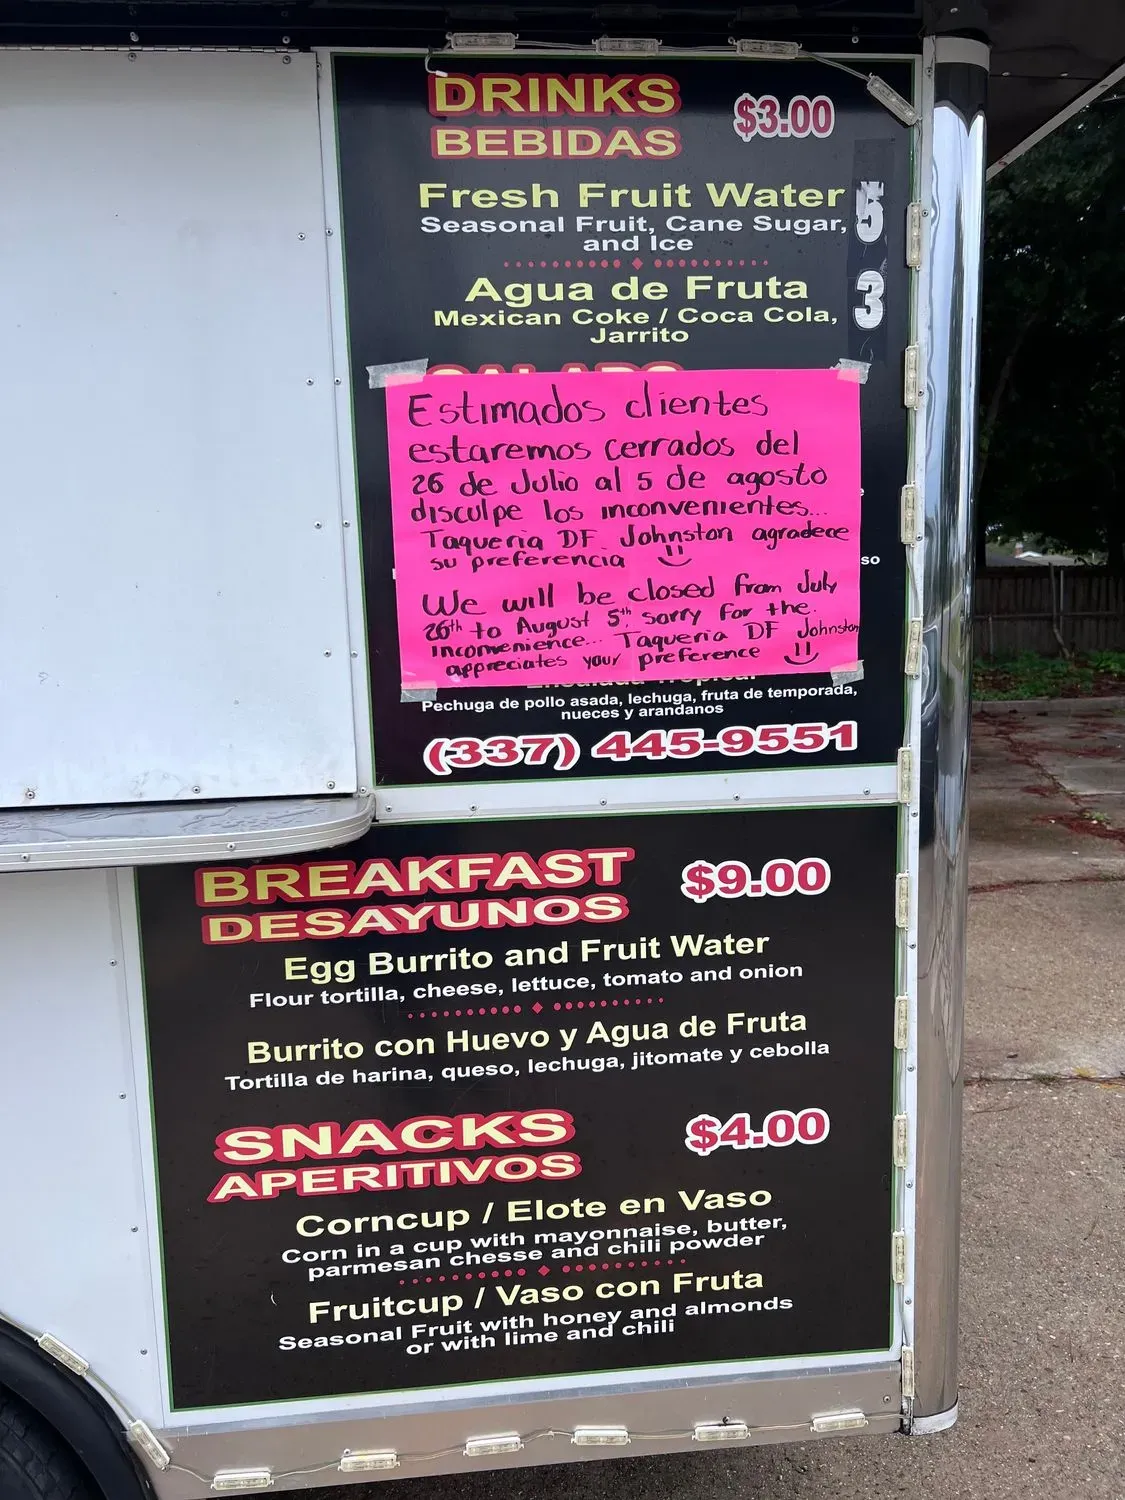 DRINKS
BEBIDAS
$3.00
Fresh Fruit Water 5
Seasonal Fruit, Cane Sugar,
and Ice
Agua de Fruta 3
Mexican Coke / Coca Cola,
Jarrito
Estimados clientes
estaremos cerrados del
26 de Julio al 5 de agosto
disculpe los inconvenientes...
Taqueria DF Johnston agradece
su preferencia
We will be closed from July
26th to August 5th, sorry for the
inconvenience... Taqueria DF Johnston
appreciates your preference
Pechuga de pollo asada, lechuga, fruta de temporada,
nueces y arandanos
(337) 445-9551
BREAKFAST
DESAYUNOS
$9.00
Egg Burrito and Fruit Water
Flour tortilla, cheese, lettuce, tomato and onion
Burrito con Huevo y Agua de Fruta
Tortilla de harina, queso, lechuga, jitomate y cebolla
SNACKS
APERITIVOS
$4.00
Corncup / Elote en Vaso
Corn in a cup with mayonnaise, butter,
parmesan chesse and chili powder
Fruitcup / Vaso con Fruta
Seasonal Fruit with honey and almonds
or with lime and chili